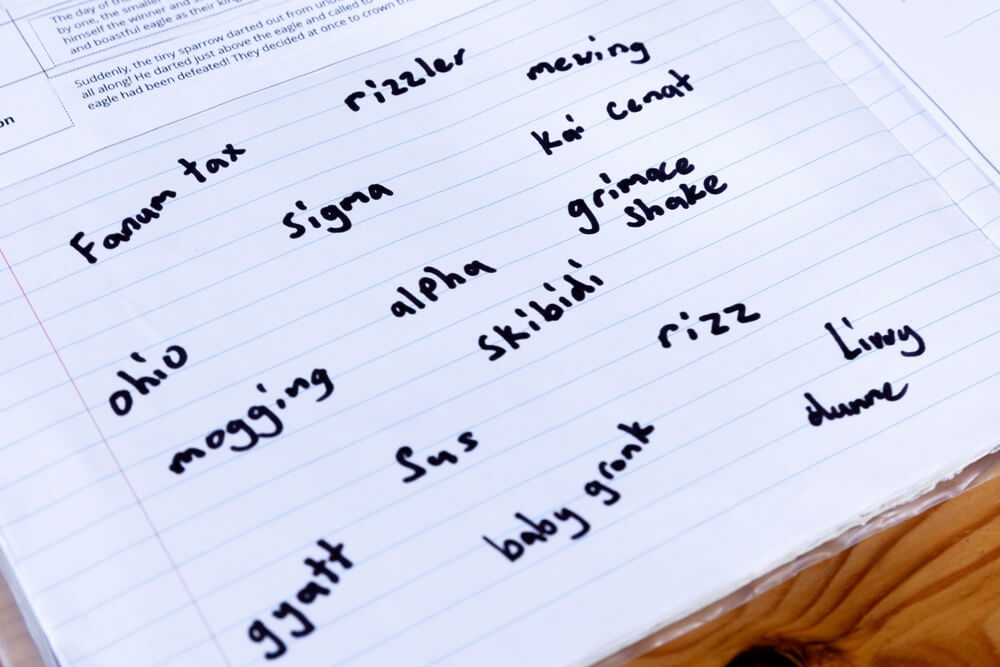 The day of
by one, the smaller
himself the winner and
and boastful eagle as their king
Suddenly, the tiny sparrow darted out from
all along! He darted just above the eagle and called to
eagle had been defeated! They decided at once to crown the
on
rizzler
mewing
Fanum tax
kai cenat
sigma
grimace
shake
alpha
skibidi
rizz
ohio
Livvy
dunne
mogging
sus
baby gronk
gyatt